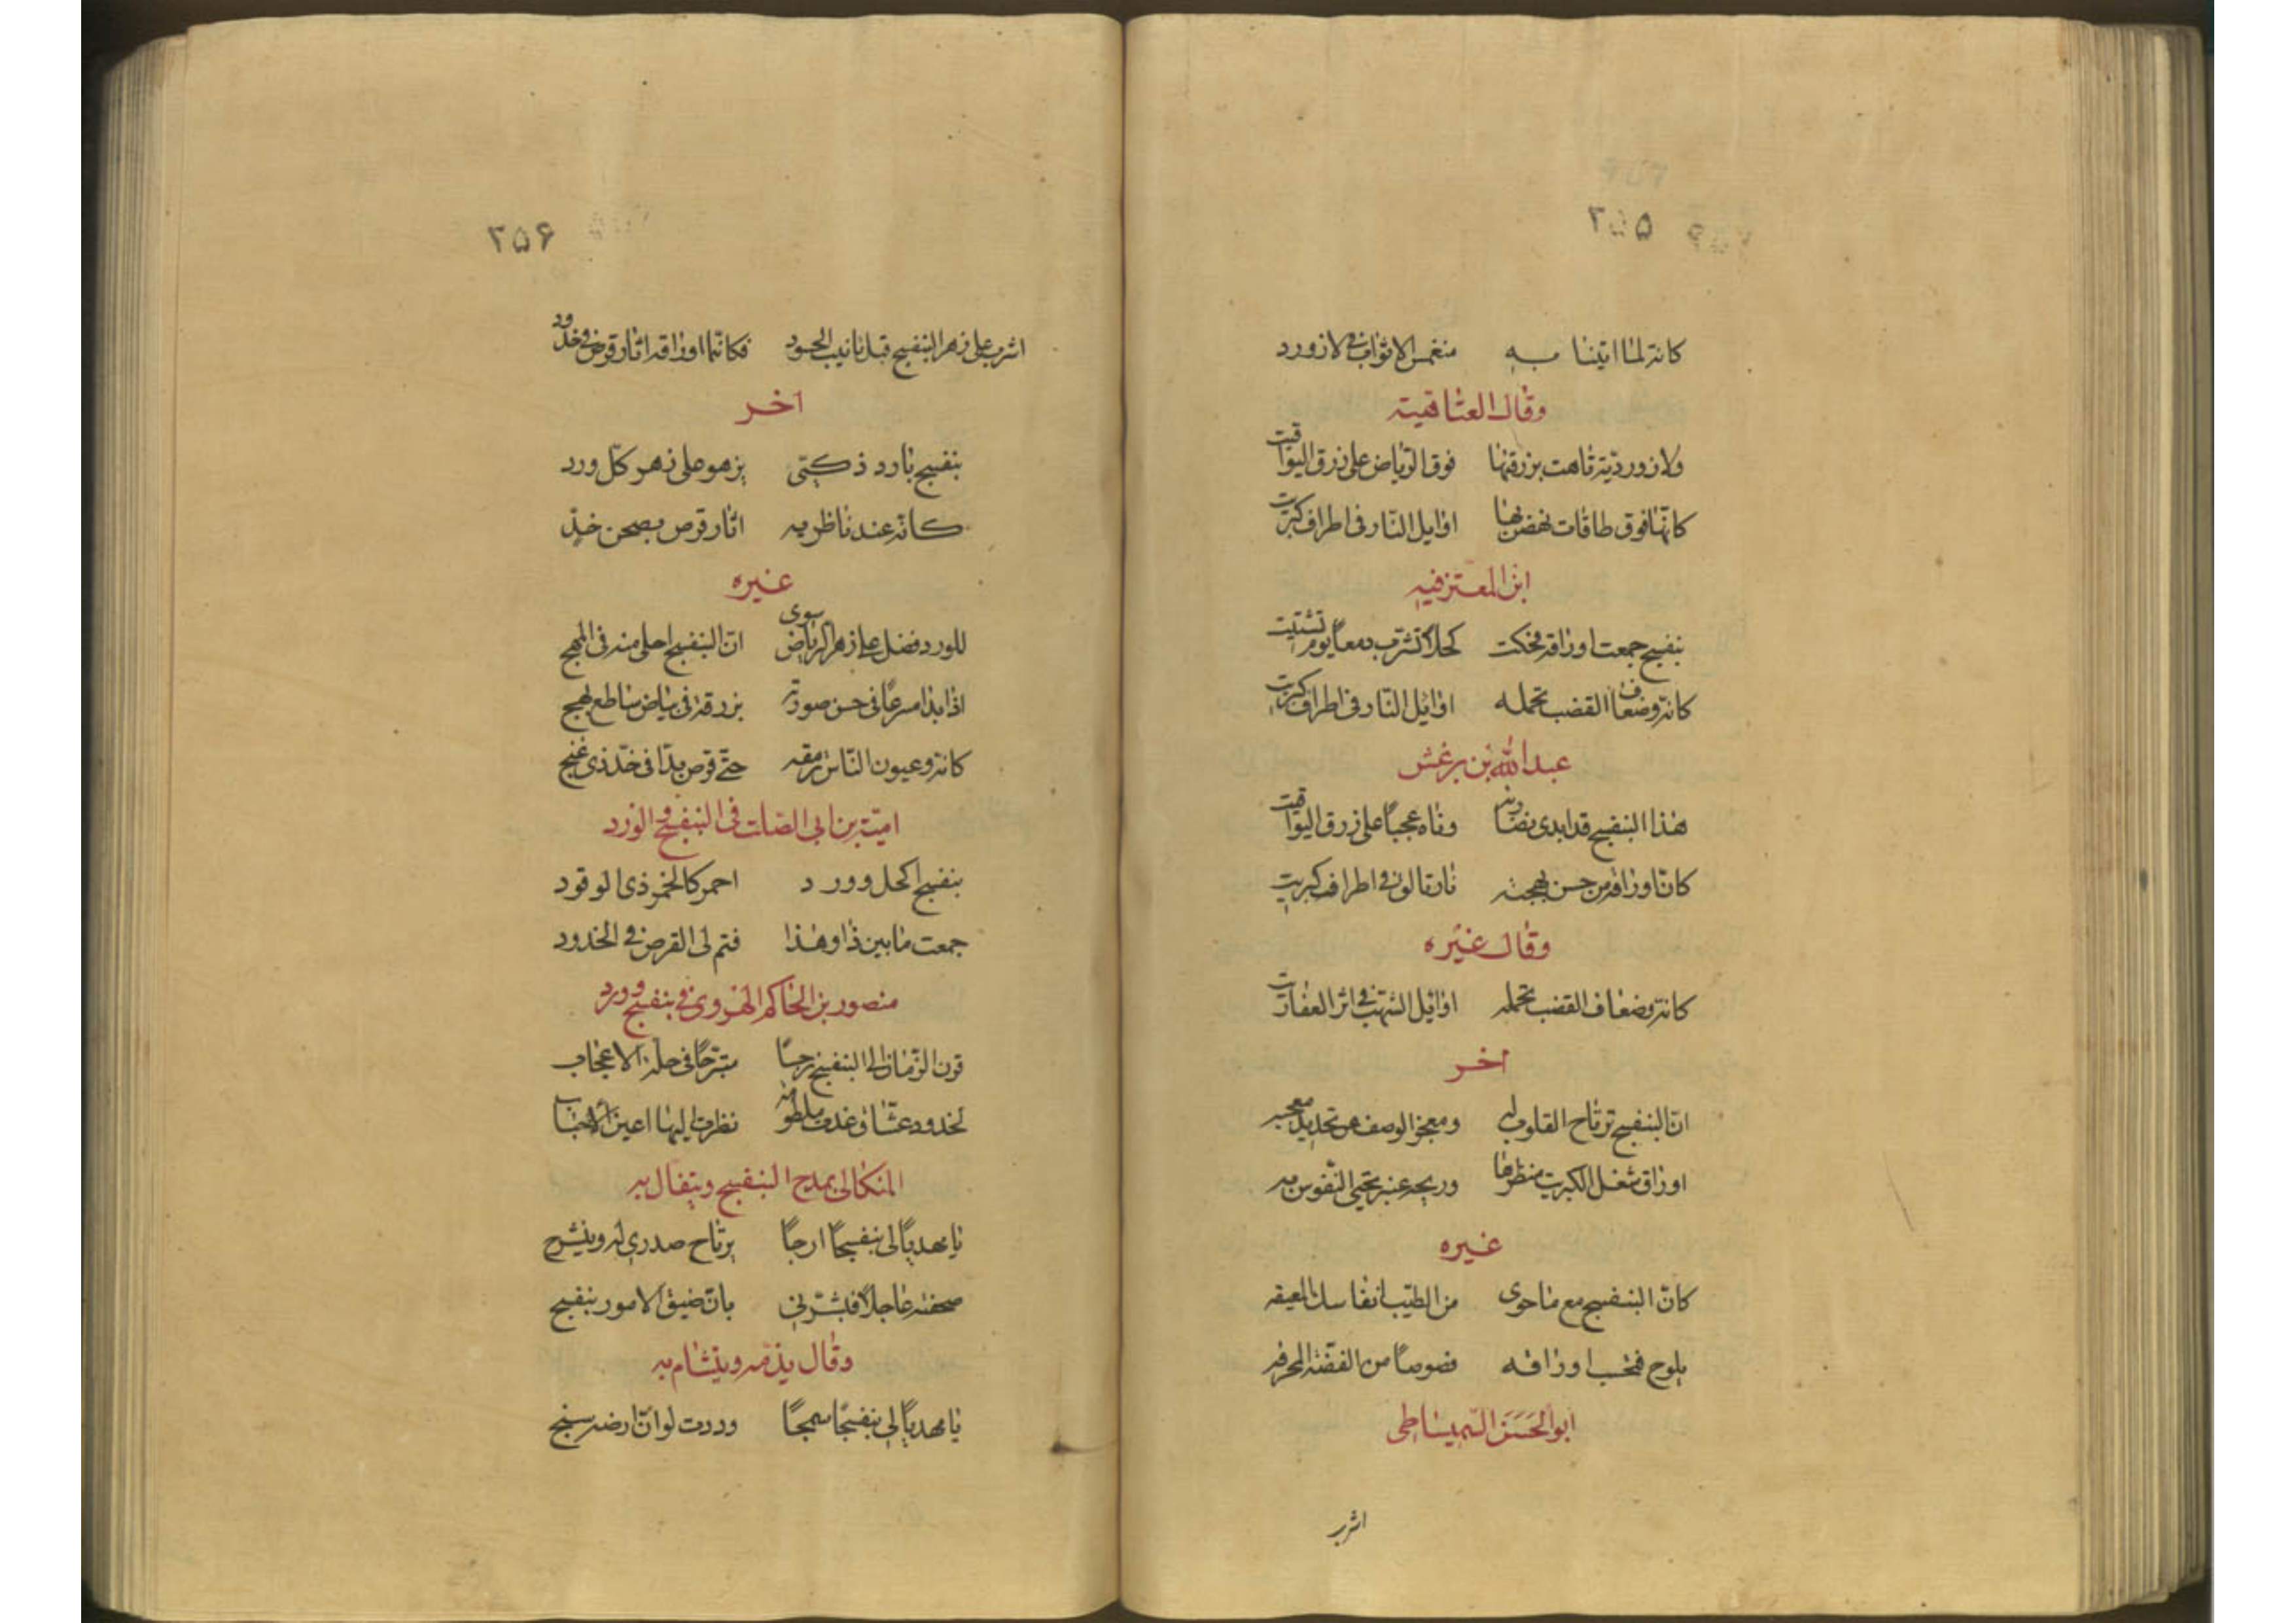 ۲۵۵
كانه لما اتينا به منغمس الاثواب في لازورد
وقال العتاهية
ولازوردية تاهت بزرقتها فوق الرياض على زرق اليواقيت
كانها فوق طاقات نهضن بها اوايل النار في اطراف كبريت
ابن المعتز فيه
بنفسج جمعت اوراقه فحكت كحلا تشرب دمعا يوم تشتيت
كانه وضعاف القضب تحمله اوائل النار في اطراف كبريت
عبدالله بن برغش
هذا البنفسج قد ابدى نضارته وتاه عجبا على زرق اليواقيت
كان اوراقه من حسن بهجته نار تعالون في اطراف كبريت
وقال غيره
كانه وضعاف القضب تحمله اوايل الشهب في اثر العفاريت
اخر
ان البنفسج ترتاح القلوب له ومعجز الوصف عن تحديد معجبه
اوراق شعل الكبريت منظرها وريحه عنبر تحيي النفوس به
غيره
كان البنفسج مع ما حوى من الطيب انفاسك العبقه
يلوح فتحسب اوراقه فصوصا من الفضة المحرقه
ابو الحسن السميساطي
اشرب
۲۵۶
اشرب على زهر البنفسج قبل تانيب الحسود فكانما اوراقه اثار قرص في خدود
اخر
بنفسج بارد ذكي يزهو على زهو كل ورد
كانه عند ناظريه اثار قرص بصحن خد
غيره
للورد فضل على زهر الرياض سوى ان البنفسج احلى منه في المهج
اذا بدا مسرعا في حسن صورته بزرقة في بياض ساطع بهج
كانه وعيون الناس ترمقه حتى قرص بدا في خد ذي غنج
امية بن ابي الصلت في البنفسج والورد
بنفسج اكحل وورد احمر كالخمر ذي الوقود
جمعت ما بين ذا وهذا فتم لي القرص في الخدود
منصور بن الحاكم الهروي في بنفسج وورد
قرن الزمان الى البنفسج نرجسا متبرجا في حلة الاعجاب
لخدود عشاق غدت ملطومة نظرت اليها اعين الاحباب
المنكالي يمدح البنفسج ويتفال به
يا مهديا لي بنفسجا ارجا يرتاح صدري له وينشرح
صحفته عاجلا فبشرني بان ضيق الامور ينفسج
وقال يذمه ويتشام به
يا مهديا لي بنفسجا سمجا وددت لو ان ارضه سبخ